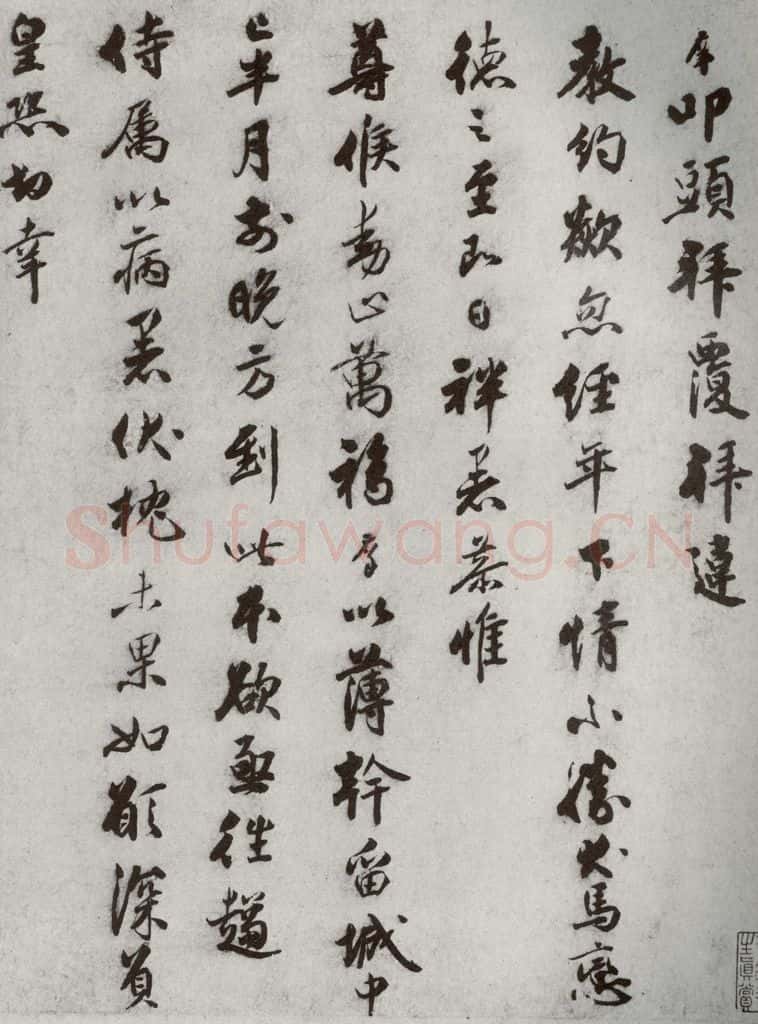 叩頭拜覆拜違
教約欻忽經年下情不勝犬馬戀
德之至即日袢暑恭惟
尊候動止萬福以薄幹留城中
已半月前晚方到此本欲亟往趨
侍属以病暑伏枕未果如願深負
皇恐切幸
Shufawang.CN